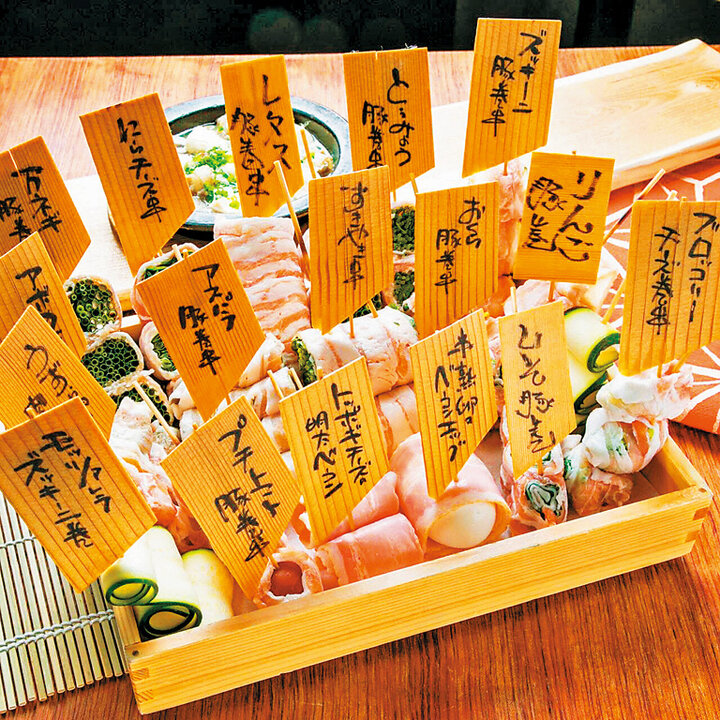 万ネギ
豚巻串
にらチーズ串
レタス
豚巻串
とうみょう
豚巻串
ズッキーニ
豚巻串
アスパラ
豚巻串
すきやき串
おくら
豚巻串
りんご
豚巻
ブロッコリー
チーズ巻串
モッツァレラ
ズッキーニ巻
プチトマト
豚巻串
トッポギチーズ
明太ベーコン
半熟卵の
ベーコンエッグ
ひそ豚巻